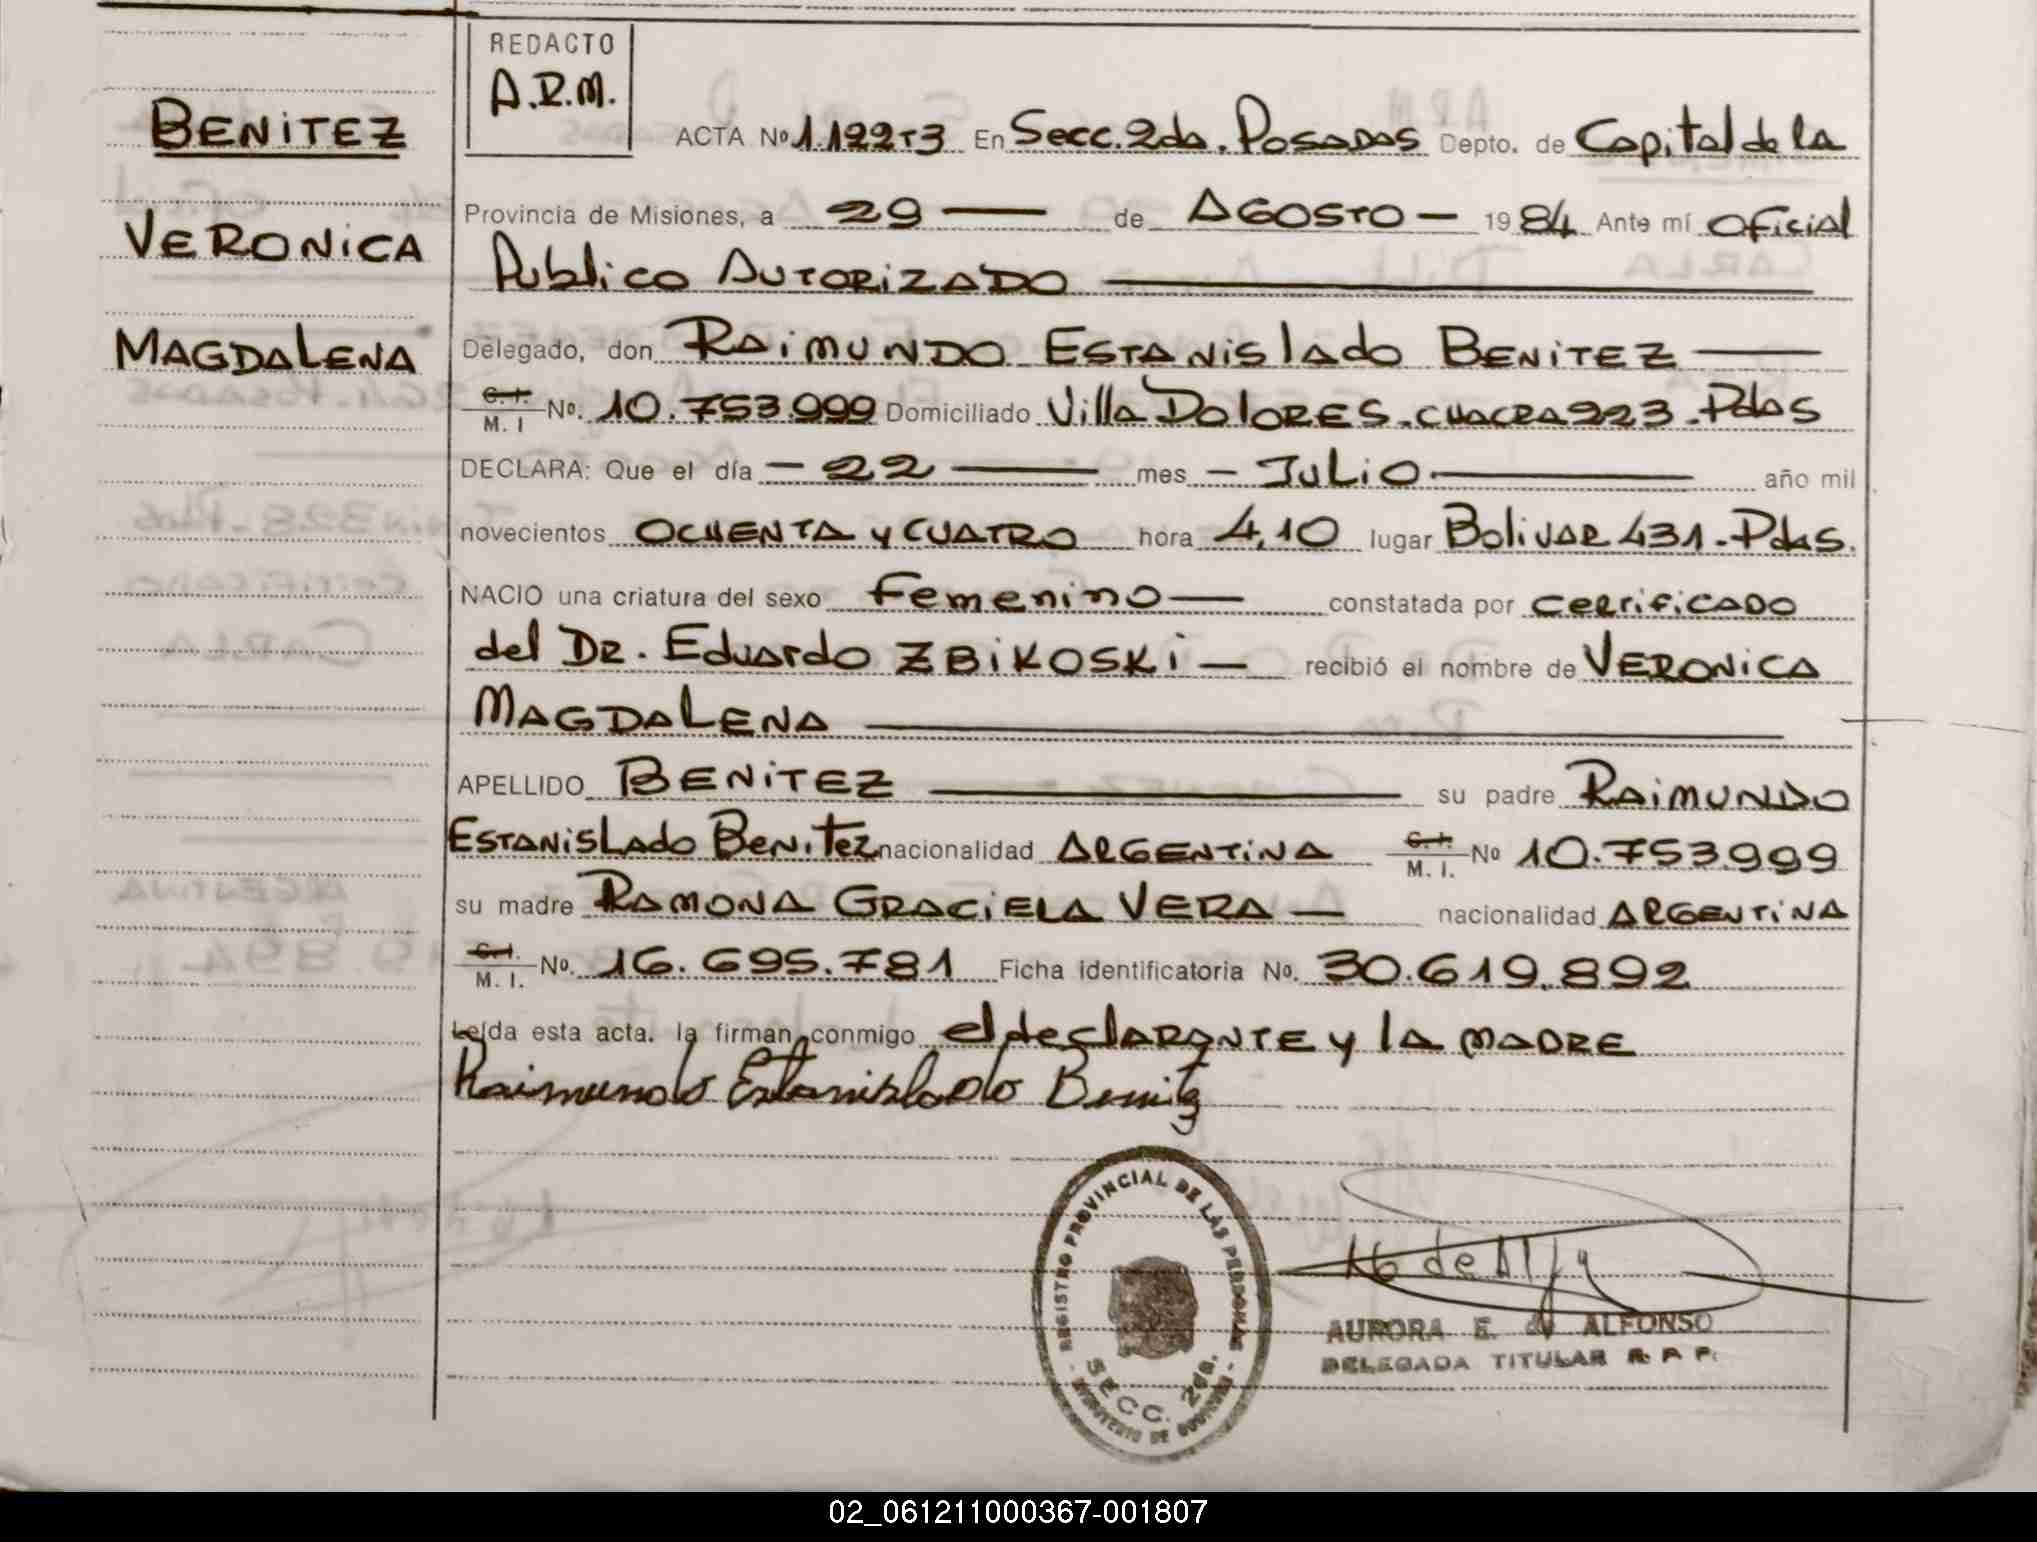 REDACTO
A.R.M.
BENITEZ
VERONICA
MAGDALENA
ACTA Nº 1.122T3 En Secc. 2da. POSADAS Depto. de Capital de la
Provincia de Misiones, a 29 — de AGOSTO — 1984 Ante mí Oficial
Publico AUTORIZADO
Delegado, don RAIMUNDO ESTANISlado BENITEZ
C.I. M.I Nº. 10.753.999 Domiciliado Villa DOLORES. CHACRA 223. Pdas
DECLARA: Que el día — 22 — mes — JULIO — año mil
novecientos OCHENTA y CUATRO hora 4,10 lugar Bolivar 431. Pdas.
NACIO una criatura del sexo Femenino — constatada por cerrificado
del DR. Eduardo ZBIKOSKI — recibió el nombre de VERONICA
MAGDALENA
APELLIDO BENITEZ su padre RAIMUNDO
ESTANISLado Benitez nacionalidad ARGENTINA C.I. M.I. Nº 10.753.999
su madre RAMONA GRACIELA VERA — nacionalidad ARGENTINA
C.I. M.I. Nº. 16.695.781 Ficha identificatoria Nº. 30.619.892
Leída esta acta. la firman conmigo el declarante y la madre
Raimundo Estanislado Benitez
REGISTRO PROVINCIAL DE LAS PERSONAS
SECC. 2da.
MINISTERIO DE GOBIERNO
AURORA E. de ALFONSO
DELEGADA TITULAR R. P. P.
02_061211000367-001807